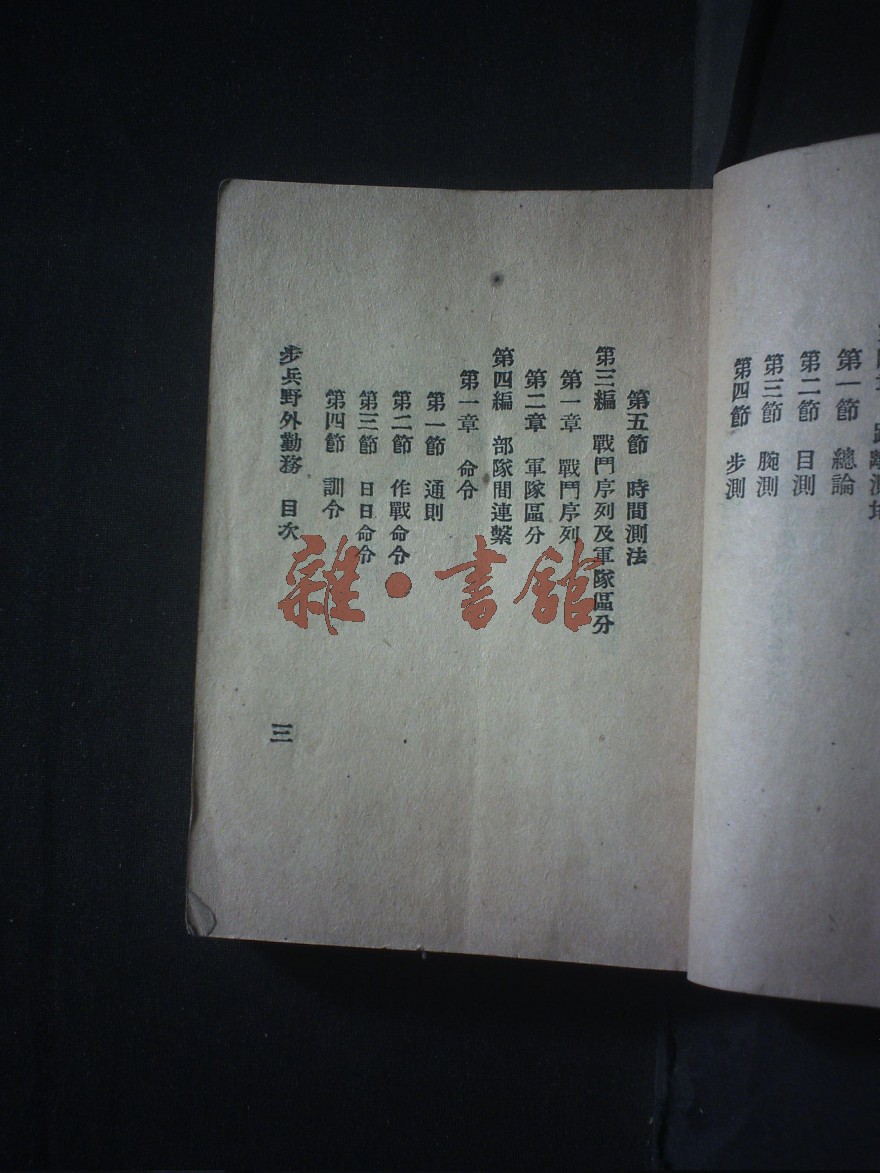 第一節 總論
第二節 目測
第三節 腕測
第四節 步測
第五節 時間測法
第三編 戰鬥序列及軍隊區分
第一章 戰鬥序列
第二章 軍隊區分
第四編 部隊間連繫
第一章 命令
第一節 通則
第二節 作戰命令
第三節 日日命令
第四節 訓令
步兵野外勤務 目次
三
雜·書館